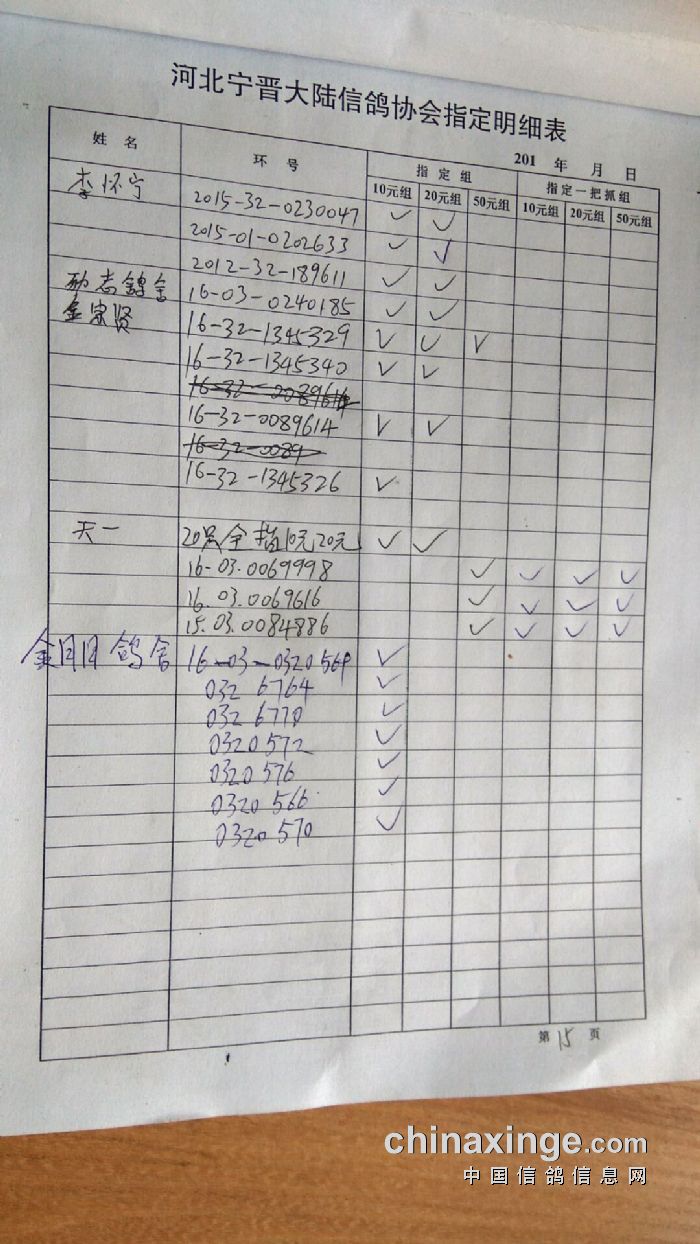 河北宁晋大陆信鸽协会指定明细表
201 年 月 日
姓 名 环 号 指 定 组 指定一把抓组
10元组 20元组 50元组 10元组 20元组 50元组
李怀宁 2015-32-0230047 ✓ ✓
2015-01-0202633 ✓ ✓
2012-32-189611 ✓ ✓
志鸽舍 16-03-0240185 ✓ ✓
金宗贤 16-32-1345329 ✓ ✓ ✓
16-32-1345340 ✓ ✓
16-32-0089614 ✓ ✓
16-32-0089
16-32-1345326 ✓
天一 20只全指10元20元 ✓ ✓
16-03.0069998 ✓ ✓ ✓ ✓
16.03.0069616 ✓ ✓ ✓ ✓
15.03.0084886 ✓ ✓ ✓ ✓
鸽舍 16-03-0320569 ✓
032 6764 ✓
032 6770 ✓
0320 572 ✓
0320 576 ✓
0320 566 ✓
0320 570 ✓
第 15 页
chinaxinge.com
中国信鸽信息网